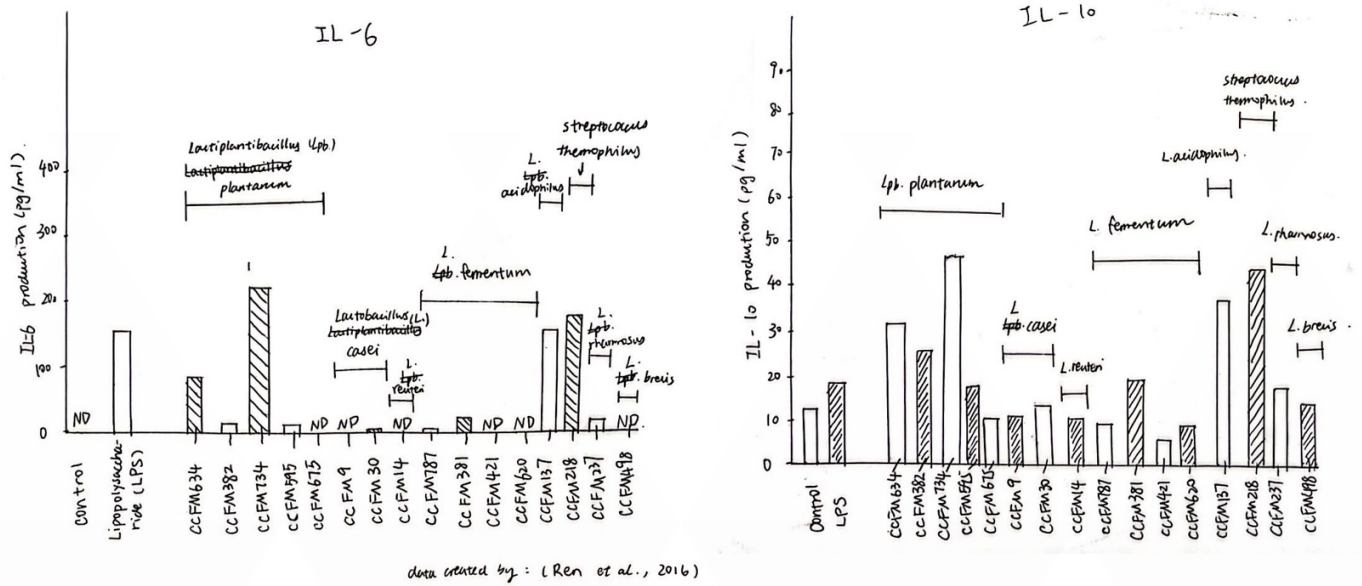 IL-6
IL-6 production (pg/ml).
400
300
200
100
0
Lactiplantibacillus (Lpb)
Lactiplantibacillus
plantarum
Lactobacillus (L.)
Lactiplantibacillus
casei
L.
Lpb.
reuteri
L.
Lpb. fermentum
L.
Lpb.
acidophilus
streptococcus
themophilus
L.
Lpb.
rhamnosus
L.
Lpb. brevis
ND
ND
ND
ND
ND
ND
ND
Control
Lipopolysaccha-
ride (LPS)
CCFM634
CCFM382
CCFM734
CCFM595
CCFM675
CCFM9
CCFM30
CCFM14
CCFM787
CCFM381
CCFM421
CCFM620
CCFM137
CCFM218
CCFM237
CCFM498
data created by : (Ren et al., 2016)
IL-10
IL-10 production (pg/ml)
90
80
70
60
50
40
30
20
10
0
Lpb. plantarum
L
Lpb. casei
L. reuteri
L. fermentum
L. acidophilus.
streptococcus
thermophilus.
L. rhamnosus.
L. brevis.
Control
LPS
CCFM634
CCFM382
CCFM734
CCFM595
CCFM675
CCFM9
CCFM30
CCFM14
CCFM787
CCFM381
CCFM421
CCFM620
CCFM137
CCFM218
CCFM237
CCFM498